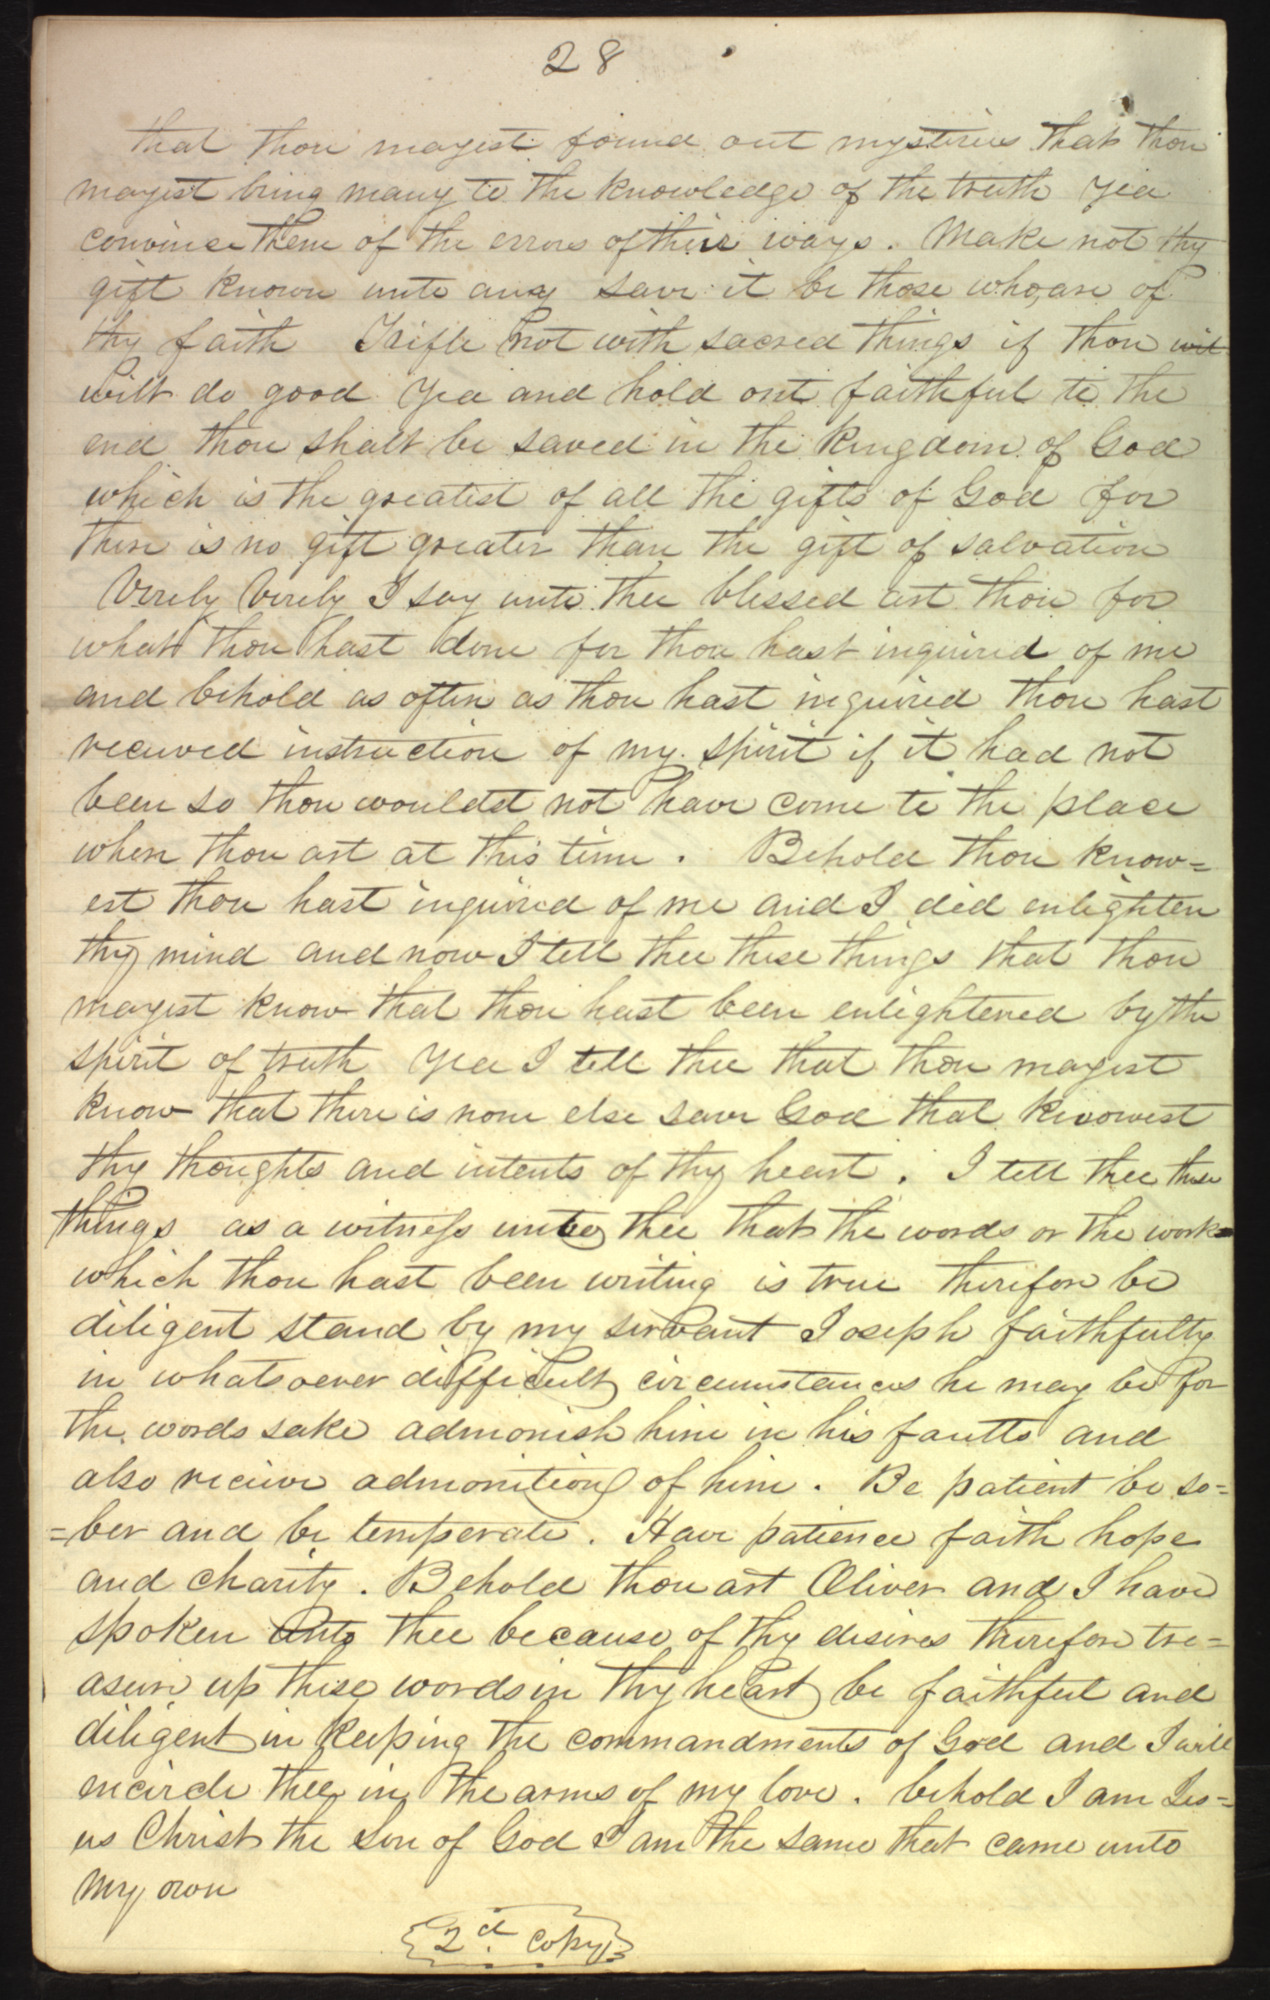 28
that thou mayest found out mysteries that thou
mayest bring many to the knowledge of the truth yea
convince them of the errors of their ways. Make not thy
gift known unto any save it be those who are of
thy faith Trifle not with sacred things if thou wil
wilt do good yea and hold out faithful to the
end thou shalt be saved in the kingdom of God
which is the greatest of all the gifts of God for
there is no gift greater than the gift of salvation
Verily Verily I say unto thee blessed art thou for
what thou hast done for thou hast inquired of me
and behold as often as thou hast inquired thou hast
received instruction of my spirit if it had not
been so thou wouldst not have come to the place
where thou art at this time. Behold thou know=
est thou hast inquired of me and I did enlighten
thy mind and now I tell thee these things that thou
mayest know that thou hast been enlightened by the
spirit of truth yea I tell thee that thou mayest
know that there is none else save God that knowest
thy thoughts and intents of thy heart. I tell thee these
things as a witness unto thee that the words or the work
which thou hast been writing is true therefore be
diligent stand by my servant Joseph faithfully
in whatsoever difficult circumstances he may be for
the words sake admonish him in his faults and
also recieve admonition of him. Be patient be so=
=ber and be temperate. Have patience faith hope
and charity. Behold thou art Oliver and I have
spoken unto thee because of thy desires therefore tre=
asure up these words in thy heart be faithful and
diligent in keeping the commandments of God and I will
encircle thee in the arms of my love. behold I am Jes=
us Christ the Son of God I am the same that came unto
my own
{2d. Copy}